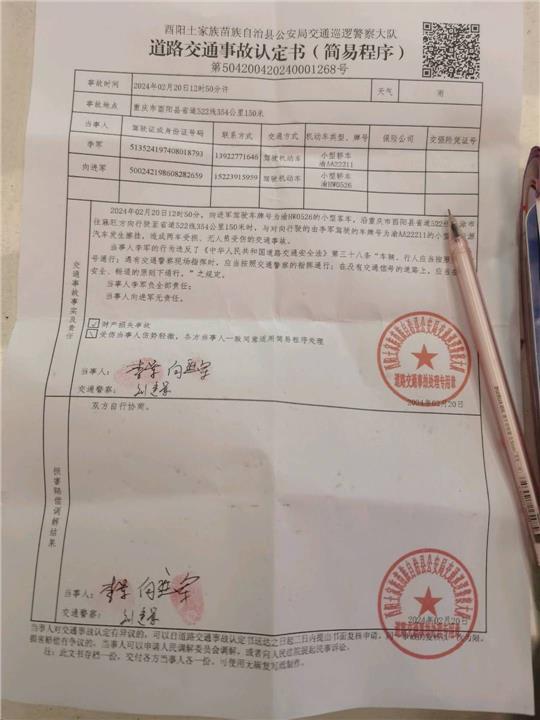 酉阳土家族苗族自治县公安局交通巡逻警察大队
道路交通事故认定书（简易程序）
第504200420240001268号
事故时间 2024年02月20日12时50分许 天气 雨
事故地点 重庆市酉阳县省道522线354公里150米
当事人 驾驶证或身份证号码 联系方式 交通方式 机动车类型、牌号 保险公司 交强险凭证号
李军 513524197408018793 13922771646 驾驶机动车 小型轿车 渝AA22211
向进军 500242198608282659 15223915959 驾驶机动车 小型轿车 渝HW0526
交通事故事实及责任
2024年02月20日12时50分，向进军驾驶车牌号为渝HW0526的小型客车，沿重庆市酉阳县省道522线
往麻旺方向行驶至省道522线354公里150米时，与对向行驶的由李军驾驶的车牌号为渝AA22211的小型
汽车发生擦挂，造成两车受损、无人员受伤的交通事故。
当事人李军的行为违反了《中华人民共和国道路交通安全法》第三十八条"车辆、行人应当按照
号通行；遇有交通警察现场指挥时，应当按照交通警察的指挥通行；在没有交通信号的道路上，应当在
安全、畅通的原则下通行。"之规定。
当事人李军负全部责任。
当事人向进军无责任。
财产损失事故
受伤当事人伤势轻微，各方当事人一致同意适用简易程序处理
当事人：李军
交通警察：
酉阳土家族苗族自治县公安局交通巡逻警察大队
道路交通事故处理专用章
2024年02月20日
损害赔偿调解结果
双方自行协商。
当事人：李军
交通警察：
酉阳土家族苗族自治县公安局交通巡逻警察大队
道路交通事故处理专用章
2024年02月20日
当事人对交通事故认定有异议的，可以自道路交通事故认定书送达之日起三日内提出书面复核申请，
损害赔偿有争议的，当事人可以申请人民调解委员会调解，或者向人民法院提起民事诉讼。
注：此文书存档一份，交付各方当事人各一份，可使用无碳复写纸制作。